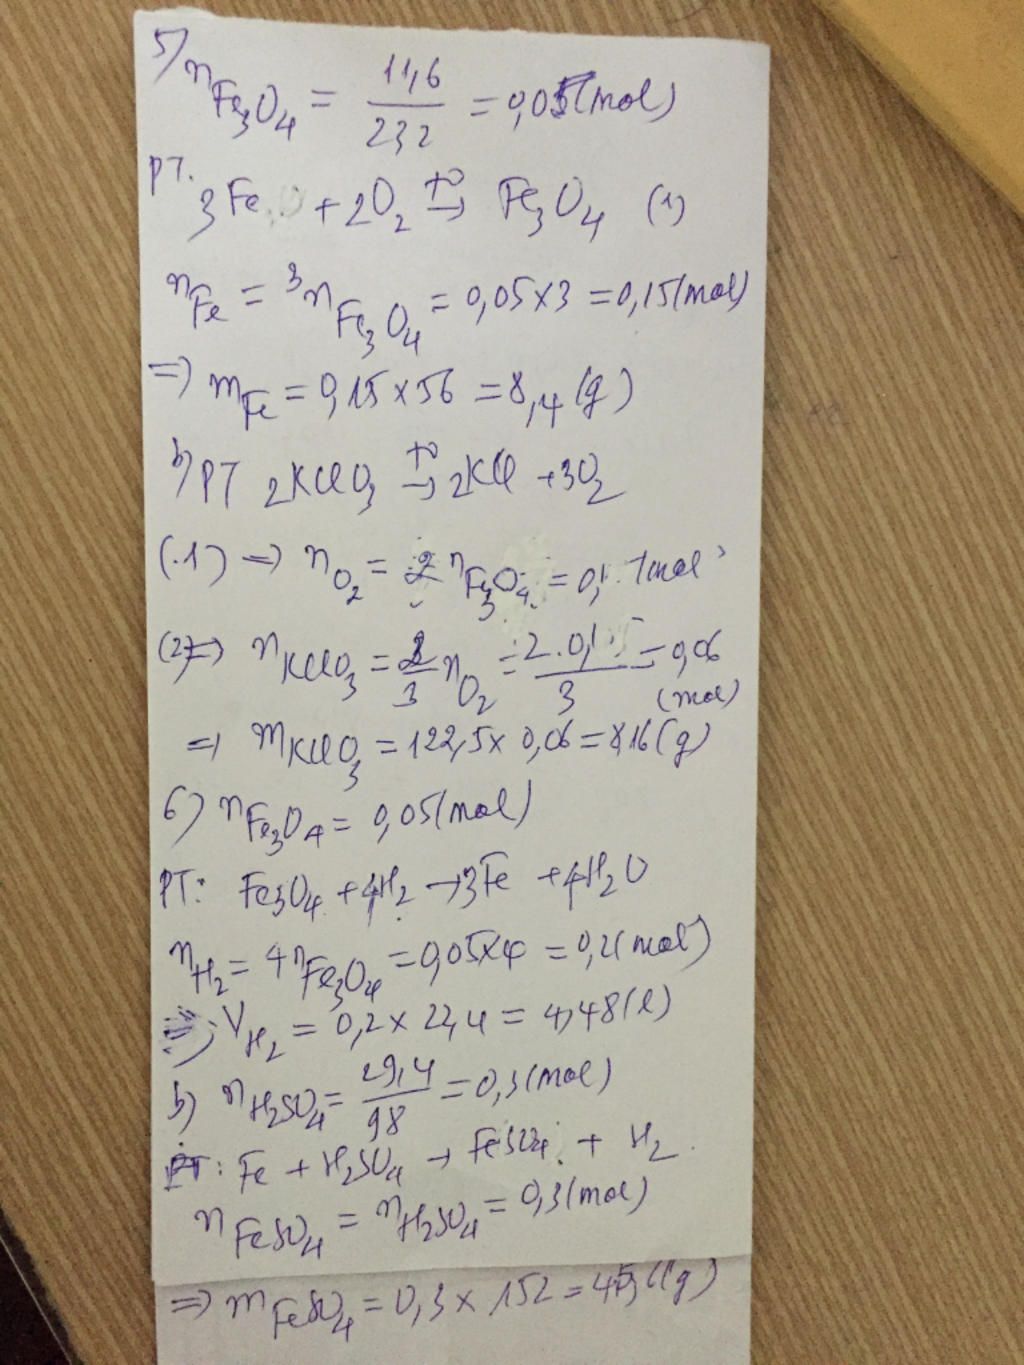 5) nFe₃O₄ = 11,6/232 = 0,05(mol)
PT. 3Fe + 2O₂ →(t°) Fe₃O₄ (1)
nFe = 3nFe₃O₄ = 0,05×3 = 0,15(mol)
=) mFe = 0,15×56 = 8,4(g)
b) PT 2KClO₃ →(t°) 2KCl + 3O₂
(1) => nO₂ = 2nFe₃O₄ = 0,1 mol
(2) => nKClO₃ = 2/3 nO₂ = 2.0,1/3 = 0,06 (mol)
=) mKClO₃ = 122,5× 0,06 = 8,16(g)
6) nFe₃O₄ = 0,05(mol)
PT: Fe₃O₄ + 4H₂ → 3Fe + 4H₂O
nH₂ = 4nFe₃O₄ = 0,05×4 = 0,2(mol)
=) VH₂ = 0,2 × 22,4 = 4,48(l)
b) nH₂SO₄ = 29,4/98 = 0,3(mol)
PT: Fe + H₂SO₄ → FeSO₄ + H₂
nFeSO₄ = nH₂SO₄ = 0,3(mol)
=> mFeSO₄ = 0,3 × 152 = (g)